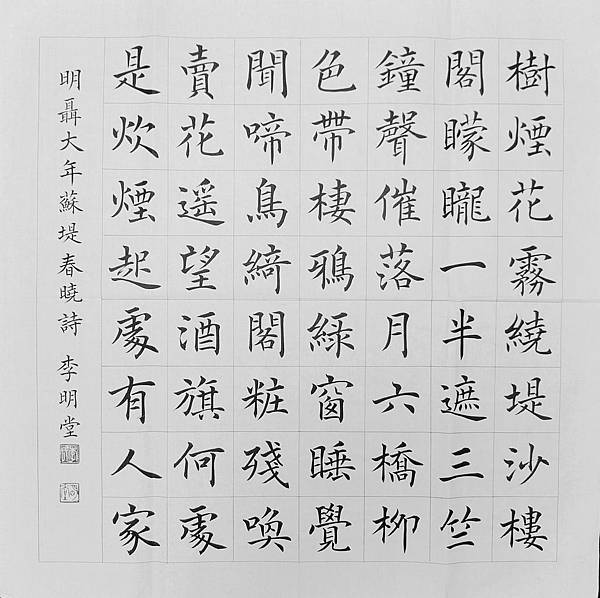 樹煙花霧繞堤沙樓
閣矇矓一半遮三竺
鐘聲催落月六橋柳
色帶棲鴉綠窗睡覺
聞啼鳥綺閣粧殘喚
賣花遥望酒旗何處
是炊煙起處有人家
明聶大年蘇堤春曉詩 李明堂